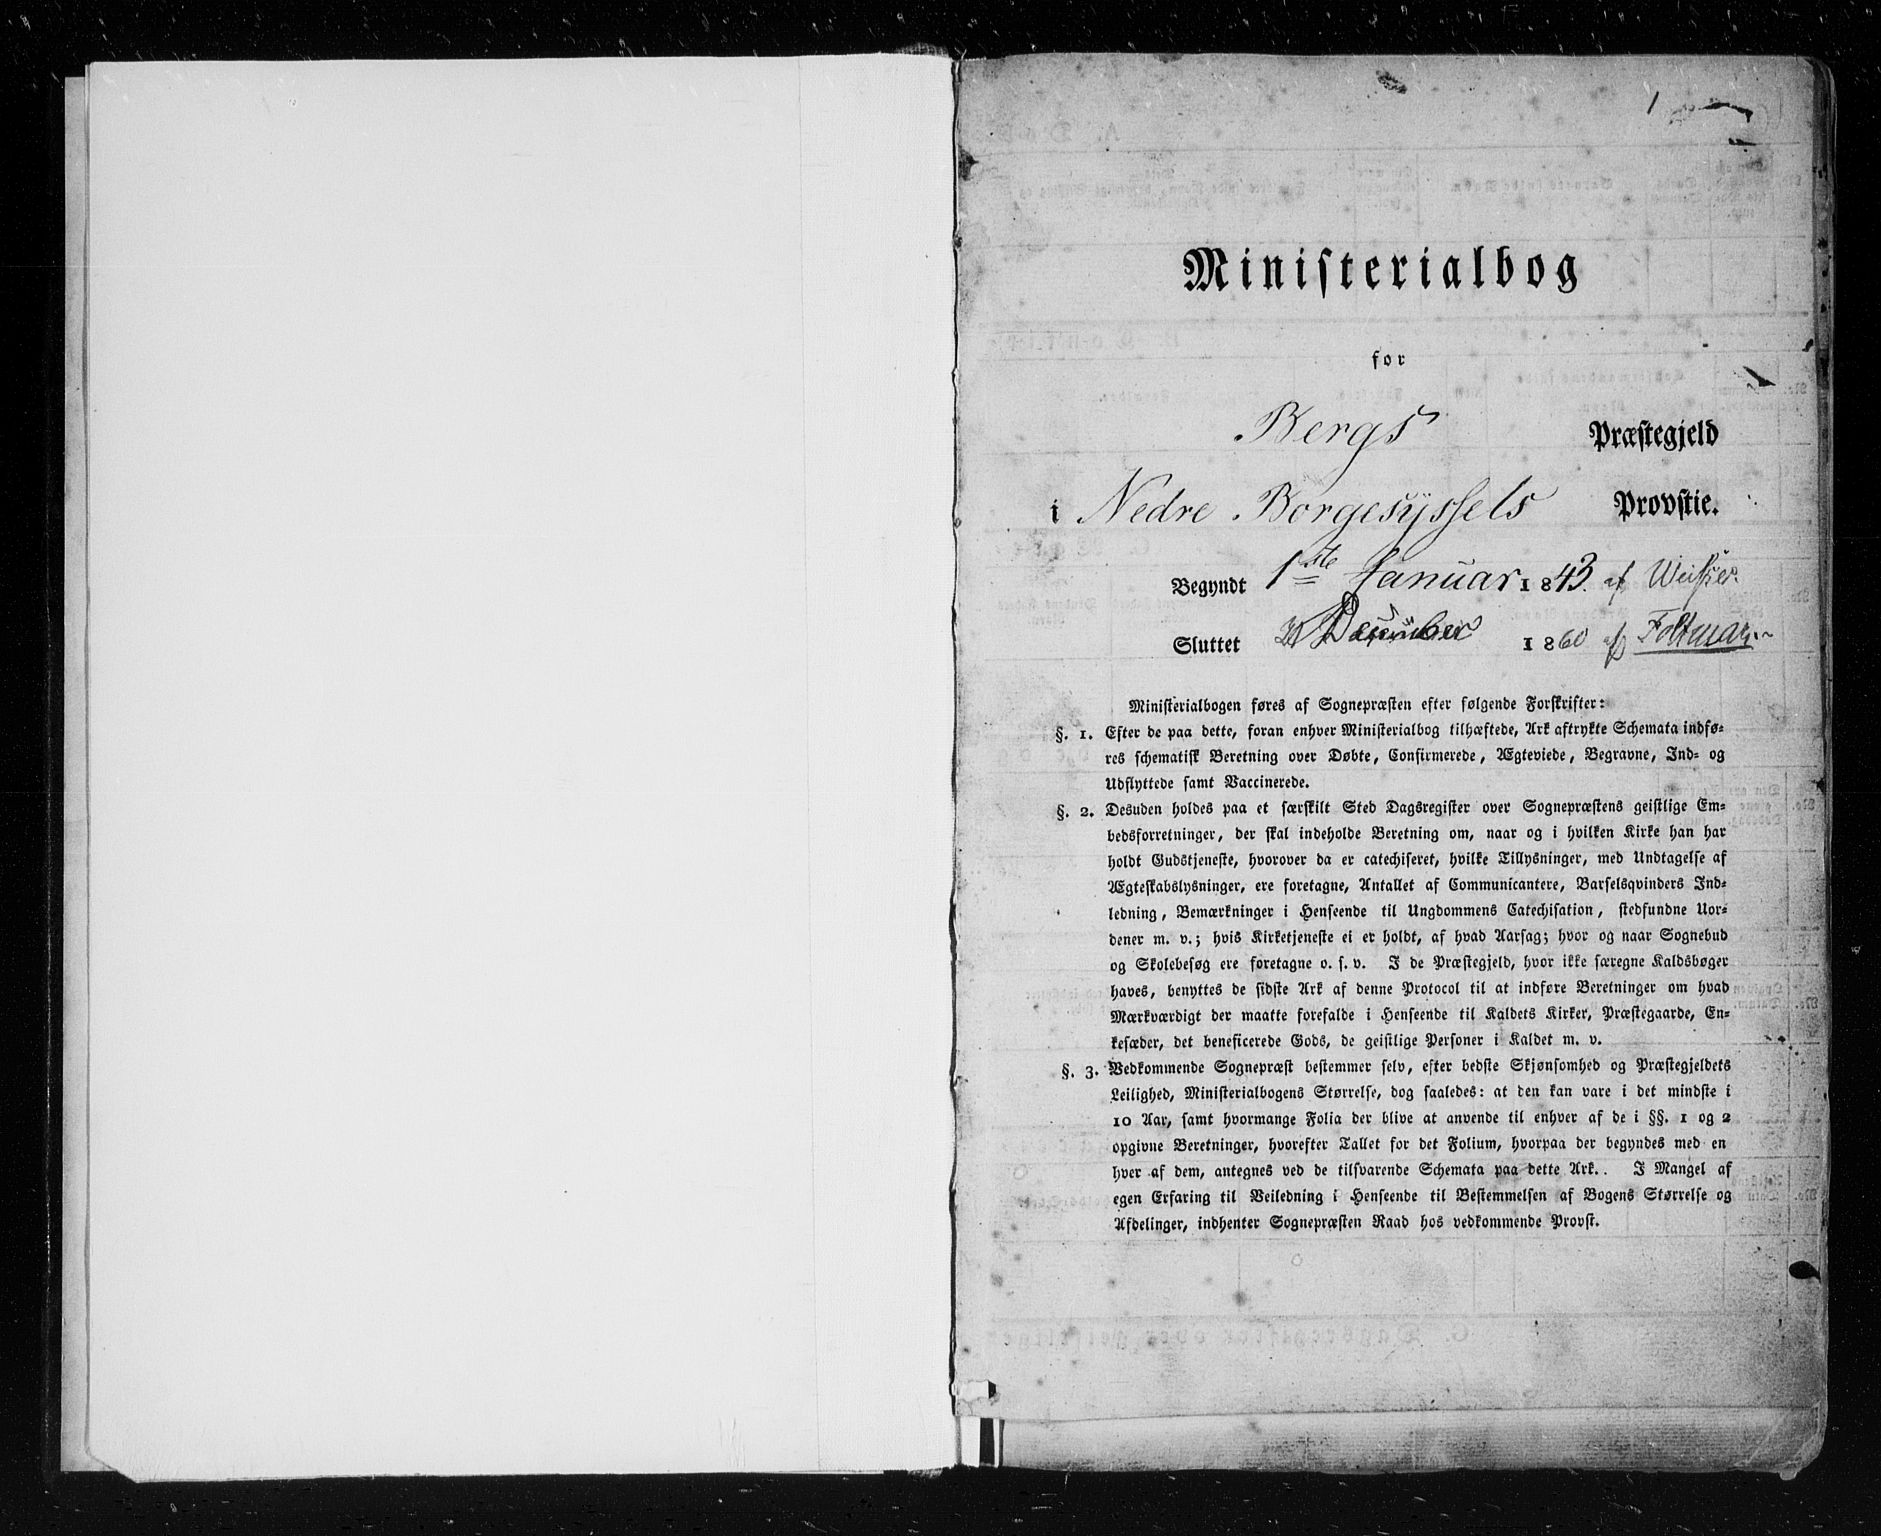 1
Ministerialbog
for
Bergs Præstegjeld
i Nedre Borgesyssels Provstie.
Begyndt 1ste Januar 1843. af
Sluttet December 1860 af Foltmar
Ministerialbogen føres af Sognepræsten efter følgende Forskrifter:
§. 1. Efter de paa dette, foran enhver Ministerialbog tilhæftede, Ark aftrykte Schemata indfø-
res schematisk Beretning over Døbte, Confirmerede, Ægteviede, Begravne, Ind- og
Udflyttede samt Vaccinerede.
§. 2. Desuden holdes paa et særskilt Sted Dagsregister over Sognepræstens geistlige Em-
bedsforretninger, der skal indeholde Beretning om, naar og i hvilken Kirke han har
holdt Gudstjeneste, hvorover da er catechiseret, hvilke Tillysninger, med Undtagelse af
Ægteskabslysninger, ere foretagne, Antallet af Communicantere, Barselqvinders Ind-
ledning, Bemærkninger i Henseende til Ungdommens Catechisation, stedfundne Uor-
dener m. v.; hvis Kirketjeneste ei er holdt, af hvad Aarsag; hvor og naar Sognebud
og Skolebesøg ere foretagne o. s. v. I de Præstegjeld, hvor ikke særegne Kaldsbøger
haves, benyttes de sidste Ark af denne Protocol til at indføre Beretninger om hvad
Mærkværdigt der maatte forefalde i Henseende til Kaldets Kirker, Præstegaarde, En-
kesæder, det beneficerede Gods, de geistlige Personer i Kaldet m. v.
§. 3. Vedkommende Sognepræst bestemmer selv, efter bedste Skjønsomhed og Præstegjeldets
Leilighed, Ministerialbogens Størrelse, dog saaledes: at den kan vare i det mindste i
10 Aar, samt hvormange Folia der blive at anvende til enhver af de i §§. 1 og 2
opgivne Beretninger, hvorefter Tallet for det Folium, hvorpaa der begyndes med en
hver af dem, antegnes ved de tilsvarende Schemata paa dette Ark.. I Mangel af
egen Erfaring til Veiledning i Henseende til Bestemmelsen af Bogens Størrelse og
Afdelinger, indhenter Sognepræsten Raad hos vedkommende Provst.